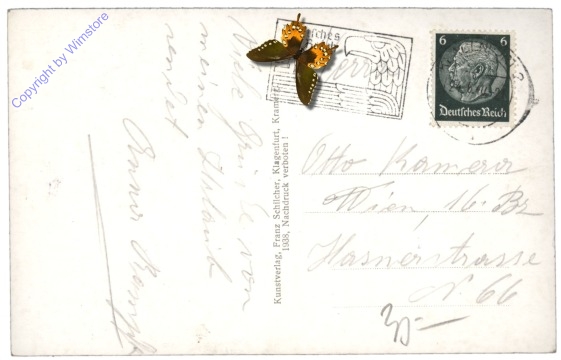 Copyright by Wimstore
Viele Grüße von
meinem Urlaub
sendet
Anna
Kunstverlag, Franz Schilcher, Klagenfurt, Kramerg.
1938, Nachdruck verboten!
6 6
Deutsches Reich
Otto Kamerer
Wien, 16. Bz
Hasnerstrasse
N. 66